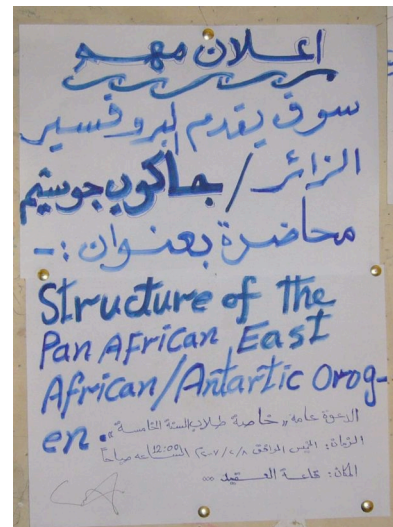 اعلان مهم
سوف يقدم البروفسير
الزائر / جاكوب جوشيم
محاضرة بعنوان :-
Structure of the
Pan African East
African/Antartic Orog-
en.
الدعوة عامة ،، خاصة طلاب السنة الخامسة
الزمان : الموافق ٢٠٠٧/٤/٨ الساعة 12:00 صباحاً
المكان : قاعة العقيد